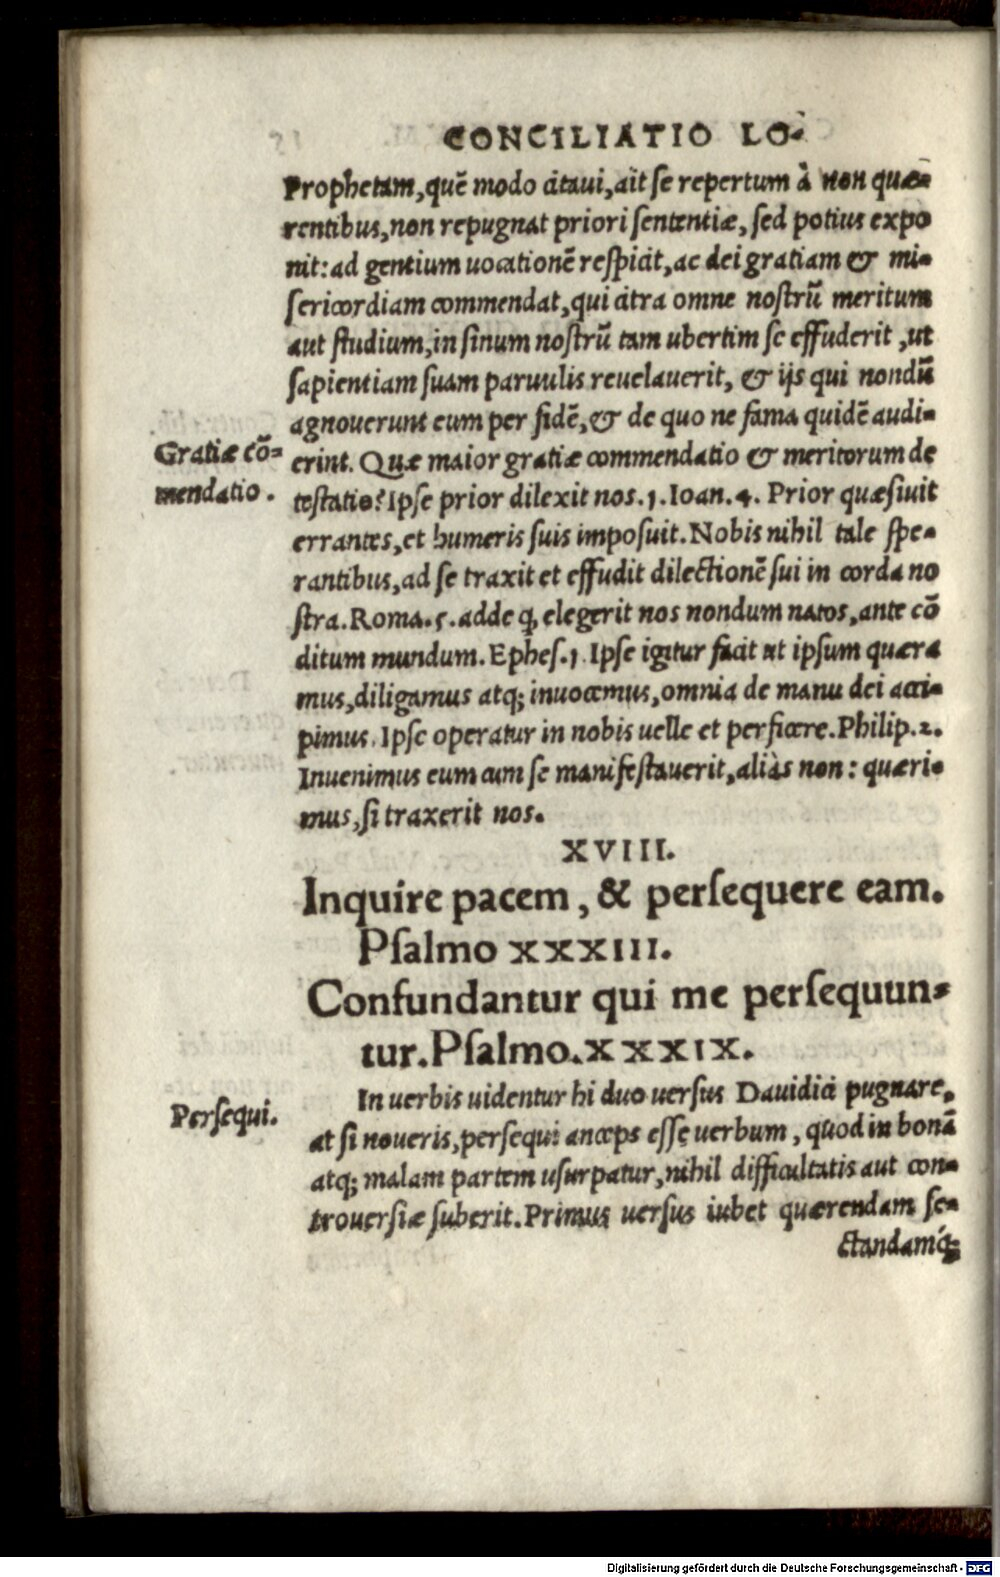 CONCILIATIO LO-
Prophetam, quē modo citaui, ait se repertum à non quæ-
rentibus, non repugnat priori sententiæ, sed potius expo
nit: ad gentium uocationē respicit, ac dei gratiam & mi-
sericordiam commendat, qui citra omne nostrū meritum
aut studium, in sinum nostrū tam ubertim se effuderit, ut
sapientiam suam paruulis reuelauerit, & ijs qui nondū
agnouerunt eum per fidē, & de quo ne fama quidē audi-
Gratiæ cō-
mendatio.
erint. Quæ maior gratiæ commendatio & meritorum de
testatio? Ipse prior dilexit nos. 1. Ioan. 4. Prior quæsiuit
errantes, et humeris suis imposuit. Nobis nihil tale spe-
rantibus, ad se traxit et effudit dilectionē sui in corda no
stra. Roma. 5. adde ꝙ elegerit nos nondum natos, ante cō
ditum mundum. Ephes. 1 Ipse igitur facit ut ipsum quæra
mus, diligamus atq; inuocemus, omnia de manu dei acci-
pimus. Ipse operatur in nobis uelle et perficere. Philip. 2.
Inuenimus eum cum se manifestauerit, aliàs non: quæri-
mus, si traxerit nos.
XVIII.
Inquire pacem, & persequere eam.
Psalmo XXXIII.
Confundantur qui me persequun-
tur. Psalmo. XXXIX.
In uerbis uidentur hi duo uersus Dauidici pugnare,
Persequi.
at si noueris, persequi anceps esse uerbum, quod in bonā
atq; malam partem usurpatur, nihil difficultatis aut con-
trouersiæ suberit. Primus uersus iubet quærendam se-
ctandamq́;
Digitalisierung gefördert durch die Deutsche Forschungsgemeinschaft - DFG